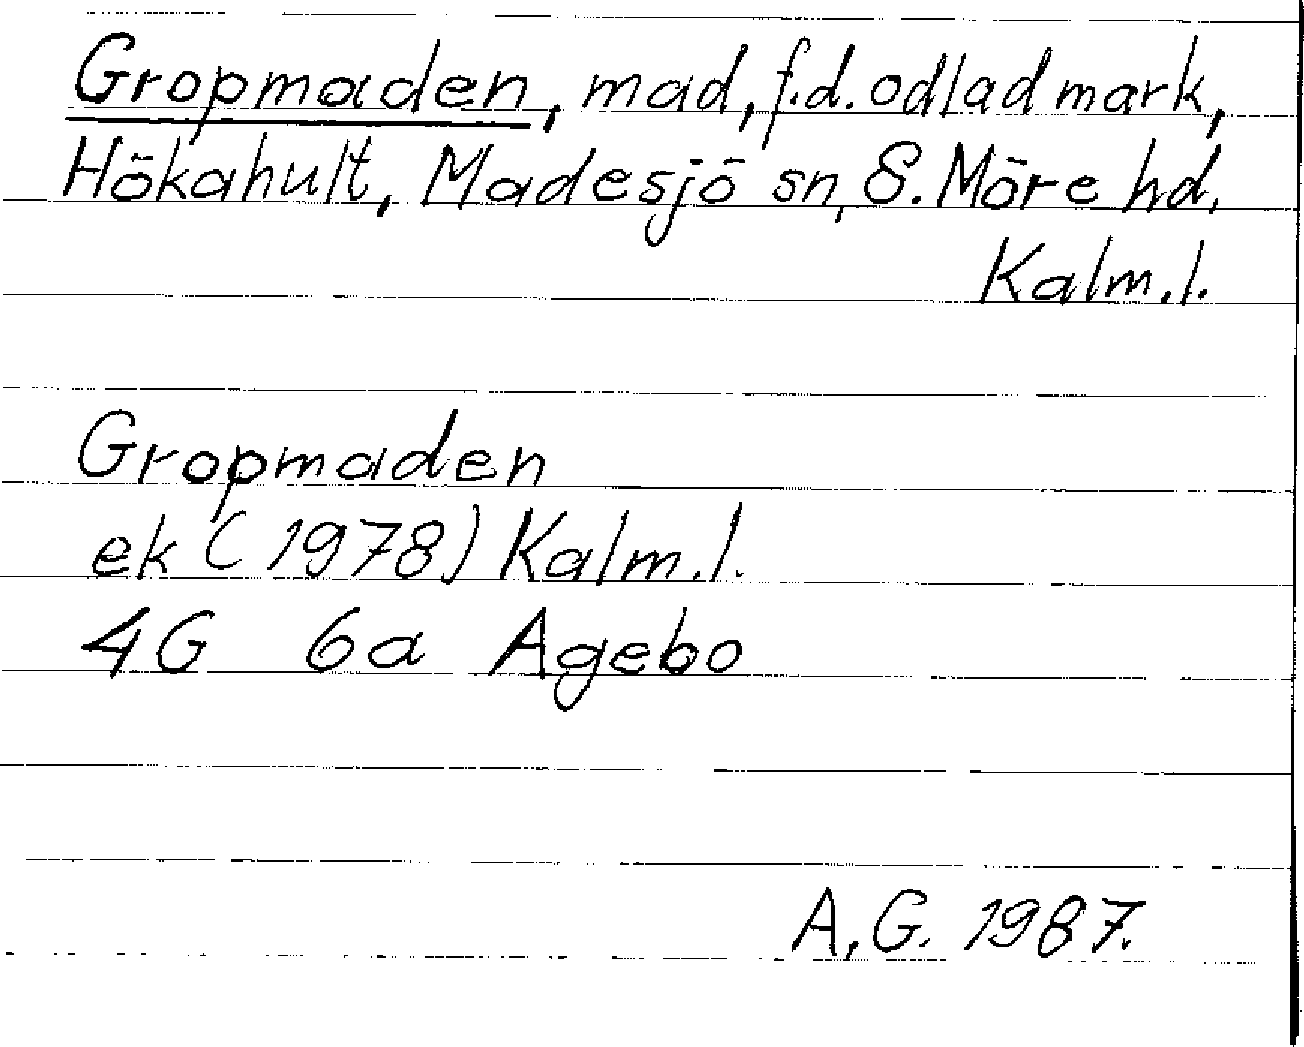 Gropmaden, mad, f.d. odlad mark,
Hökahult, Madesjö sn, S. Möre hd,
Kalm.l.
Gropmaden
ek (1978) Kalm.l.
4G 6a Agebo
A.G. 1987.